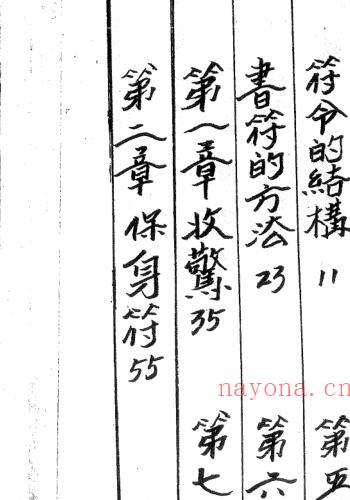 符令的結構 11
書符的方法 23
第一章 收驚 35
第二章 保身符 55
第五
第六
第七
nayona.cn